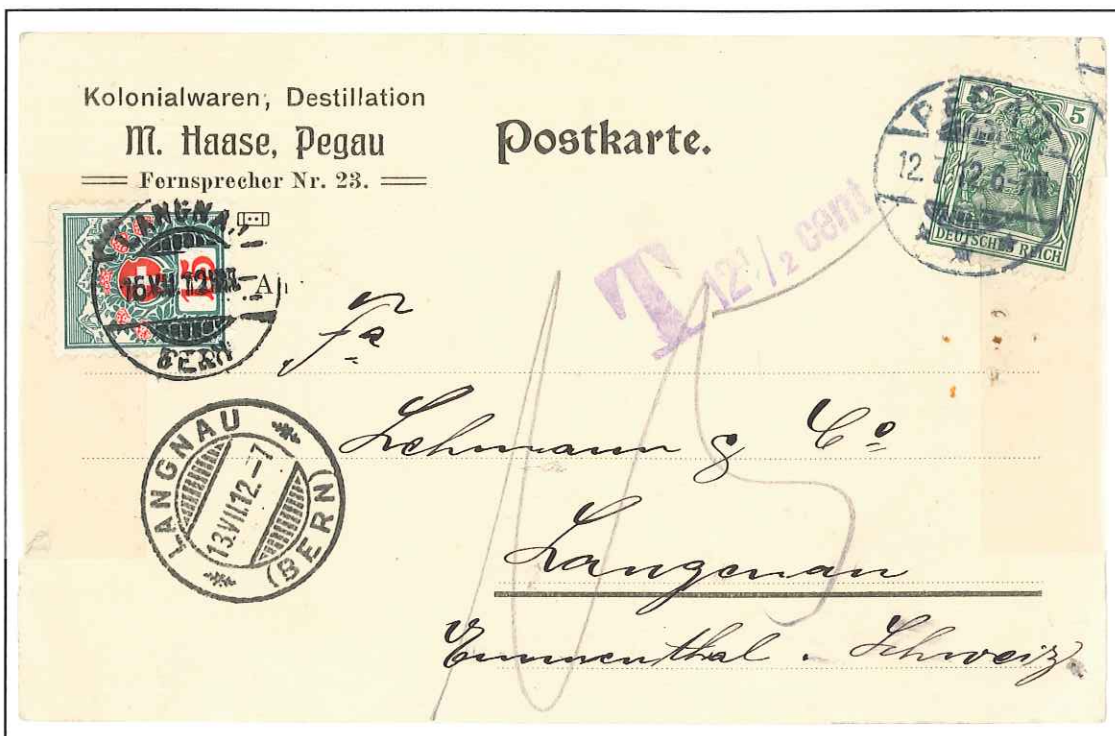 Kolonialwaren, Destillation
M. Haase, Pegau
Fernsprecher Nr. 23.
Postkarte.
PEGAU
12.7.12.6-7N.
5
DEUTSCHES REICH
T 12½ cent
LANGNAU
16.VII.12
BERN
15
Fa
Lehmann & Co
Langenau
Emmenthal. Schweiz
15
LANGNAU
13.VII.12.-7
(BERN)